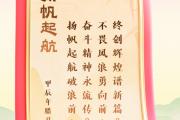 扬帆起航
甲辰年腊
扬帆起航破浪前
奋斗精神永流传
不畏风浪勇向前
终创辉煌谱新篇